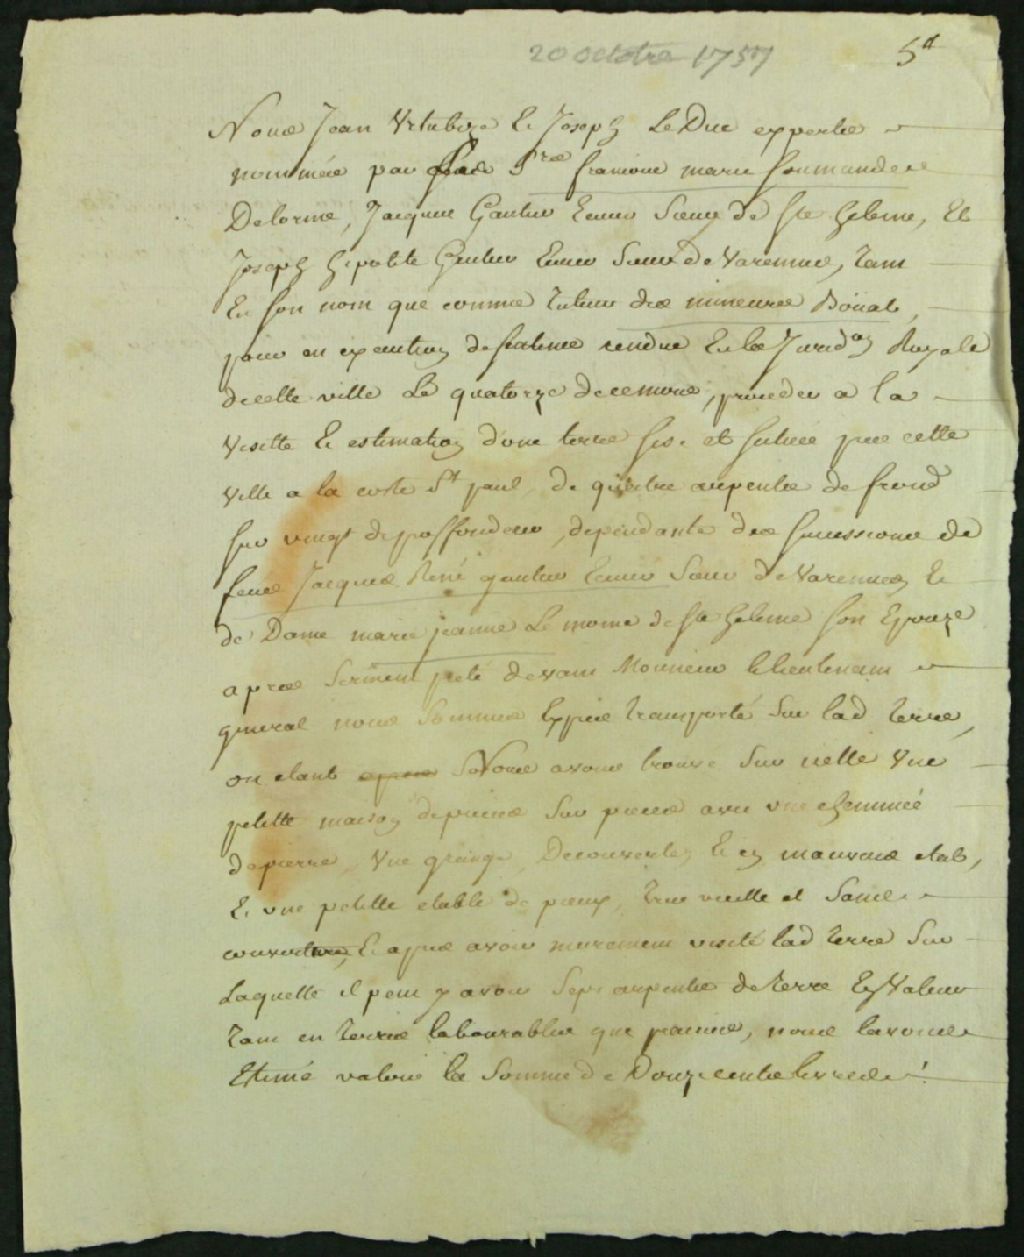 20 octobre 1757
5d
Nous Jean Le Duc experts
nommés par Srs francois marie Soumande
Delorme, Jacques Gautier Ecuier Sieur de Ste helene, Et
Joseph hipolite Gautier Ecuier Sieur de Varennes, tam
En son nom que comme tuteur des mineures Boüat,
pour en execution de sentence rendue En la Juridon Royale
de cette ville Le quatorze decembre, proceder a la
visitte Et estimation d'une terre sis. et scituée pres cette
ville a la coste St paul, de quatre arpents de frond
sur vingt de proffondeur, dependante des successions de
feue Jacques René gautier Ecuier Sieur de Varennes Et
de Dame marie jeanne Le moine de ste helene son Epouze
apres Serment preté devant Monsieur le lieutenant
general nous Sommes Exprès transporté Sur lad. terre,
ou etant Nous avons trouvé Sur icelle Une
petitte maison de pieces Sur pieces avec une cheminée
de pierre, Une grange Decouverte, Et en mauvais etat,
Et une petitte etable de pieux, tres vieille et Sans
couverture, Et apres avoir murement visité lad. terre Sur
Laquelle il peut y avoir Sept arpents de terre En Valeur
tant en terres labourables que prairies, nous lavons
Estimé valoir la Somme de Douze cents livres